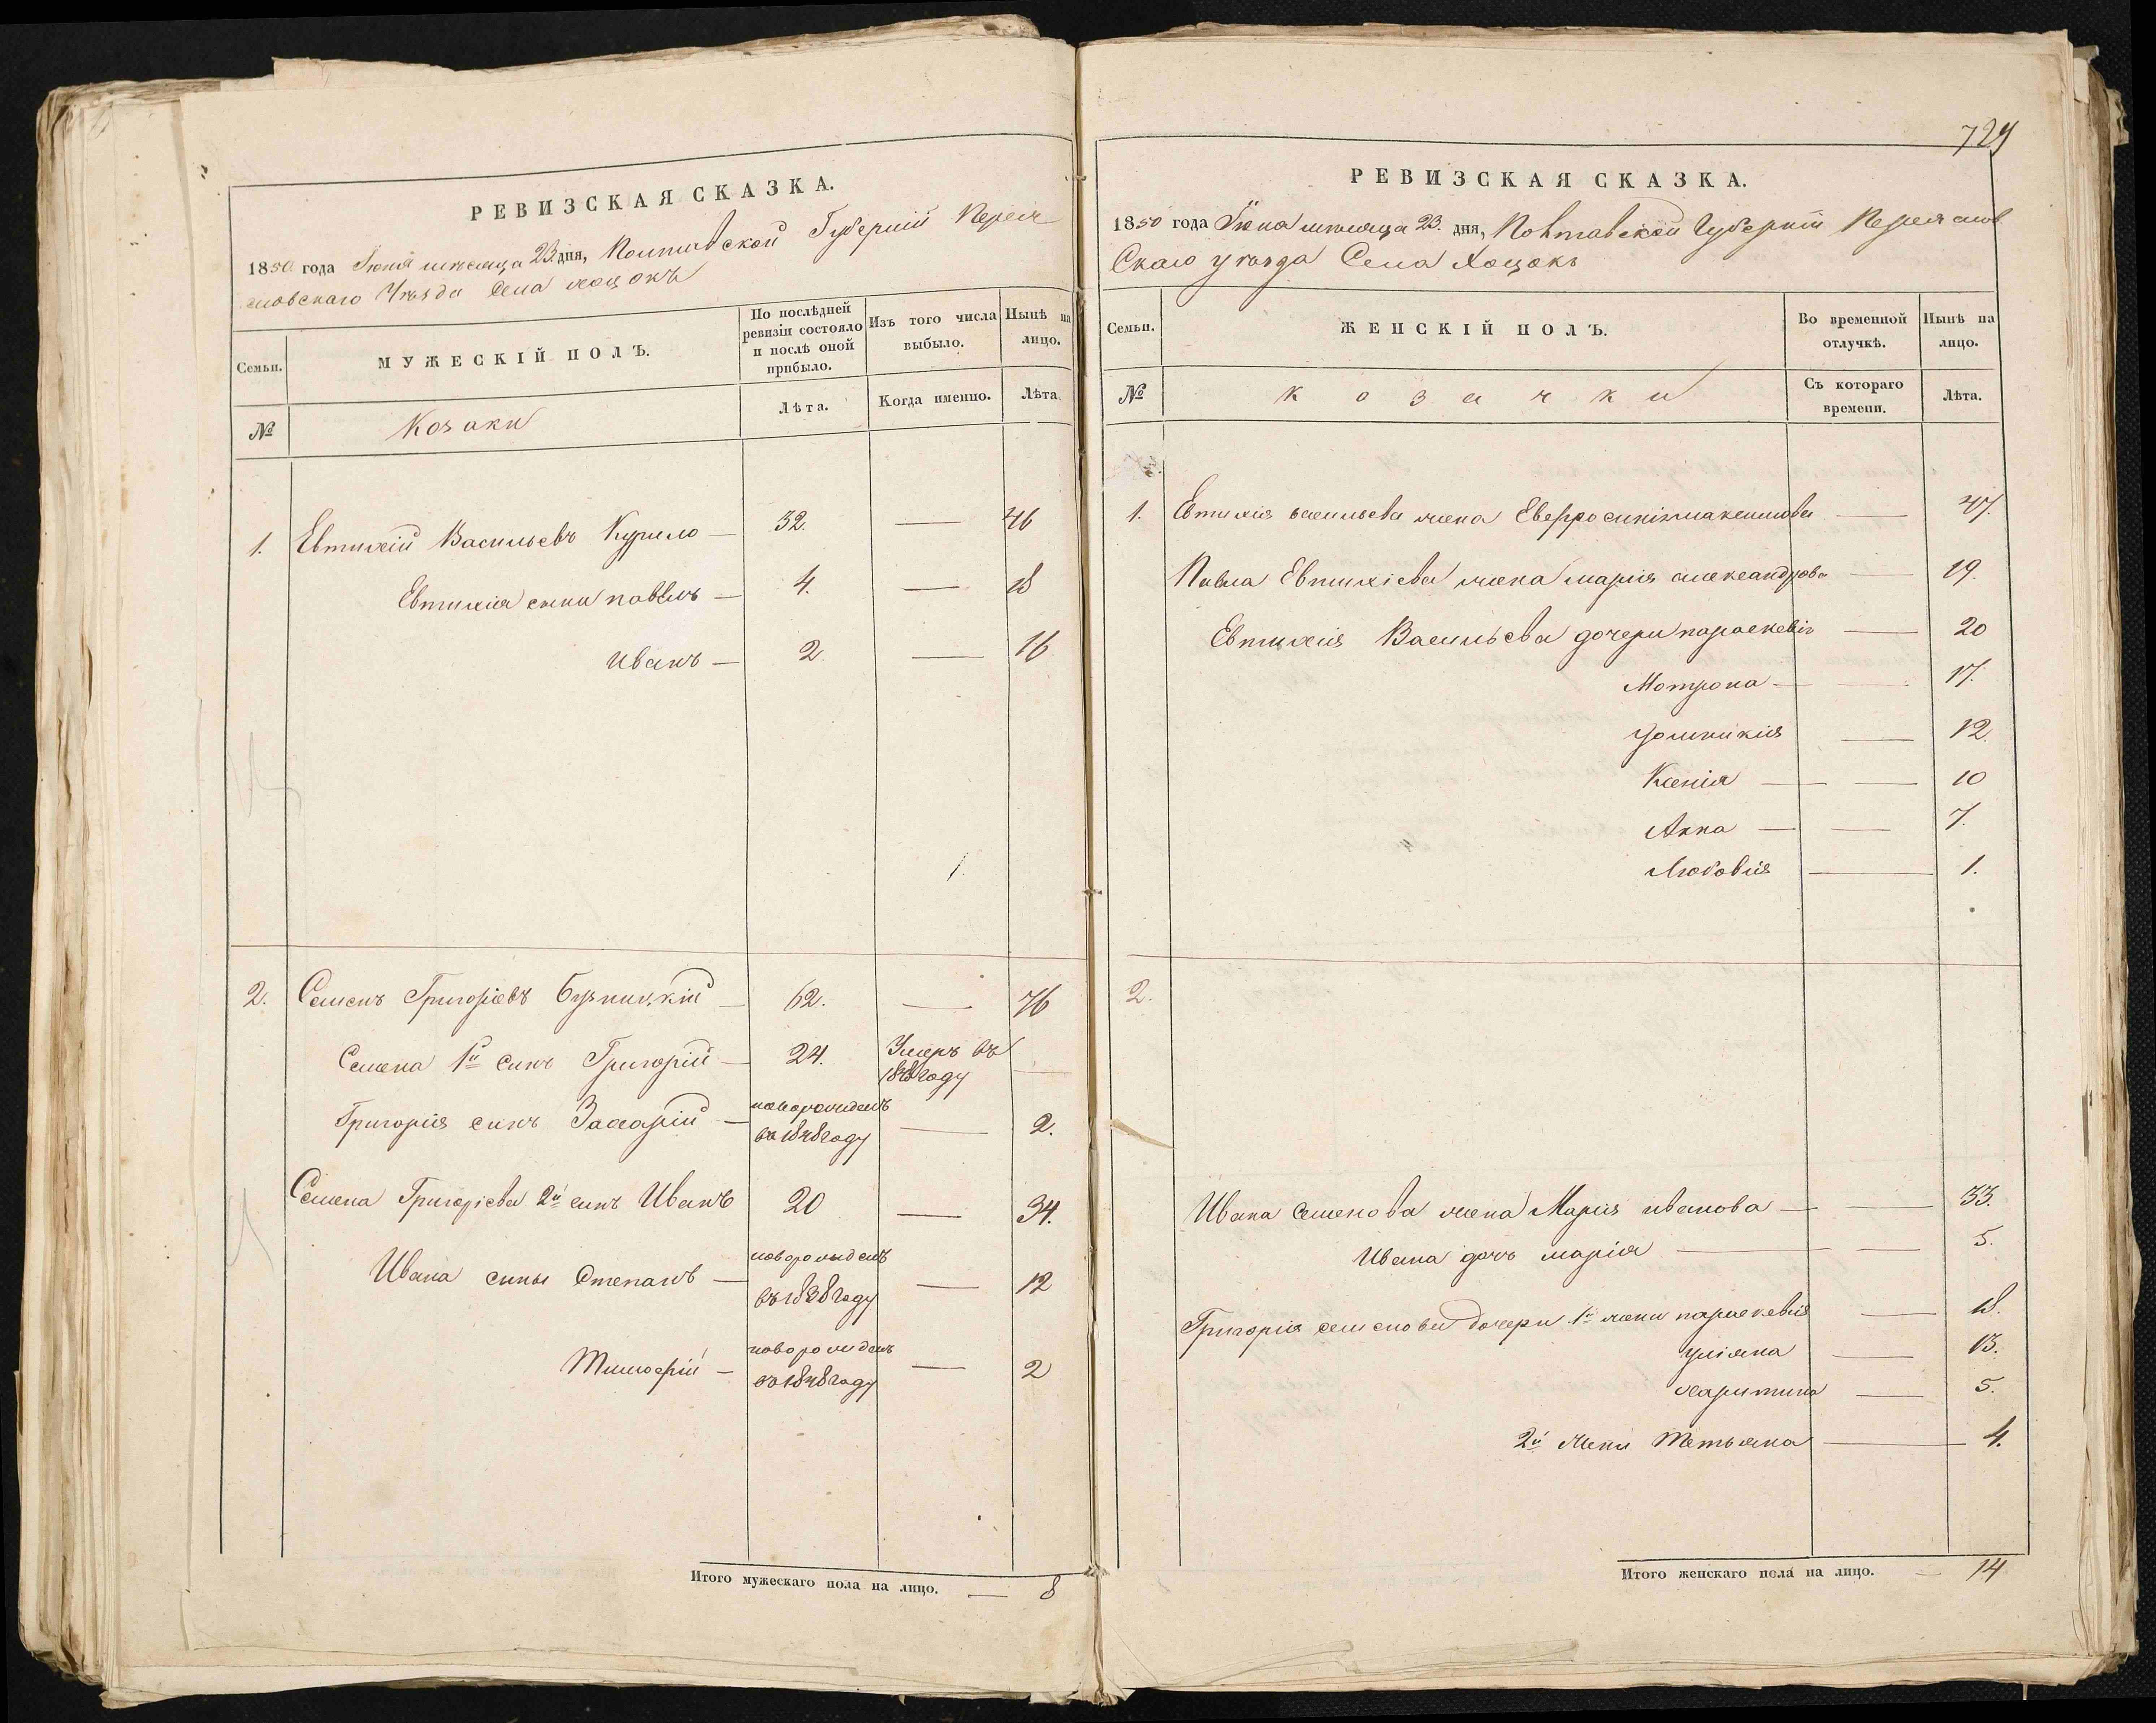 РЕВИЗСКАЯ СКАЗКА.
1850 года Іюня мѣсяца 23 дня, Полтавской Губерніи Перея
словскаго Уѣзда Села Хоцокъ
Семьи.
МУЖЕСКІЙ ПОЛЪ.
По послѣдней
ревизіи состояло
и послѣ оной
прибыло.
Изъ того числа
выбыло.
Нынѣ на
лицо.
№
Козаки
Лѣта.
Когда именно.
Лѣта.
1. Евтихій Васильевъ Курило — 32. — 46
Евтихія сыны павелъ — 4. — 18
Иванъ — 2 — 16
2. Семенъ Григоріевъ — 62. — 76
Семена 1й сынъ Григорій — 24. Умеръ въ
1848 году —
Григорія сынъ Захарій — новорожденъ
въ 1848 году — 2.
Семена Григоріева 2й сынъ Иванъ 20 — 34.
Ивана сыны Степанъ — новорожденъ
въ 1838 году — 12
Тимофій — новорожденъ
въ 1848 году — 2
Итого мужескаго пола на лицо. — 8
729
РЕВИЗСКАЯ СКАЗКА.
1850 года Іюня мѣсяца 23. дня, Полтавской Губерніи Переяслов
скаго уѣзда Села Хоцокъ
Семьи.
ЖЕНСКІЙ ПОЛЪ.
Во временной
отлучкѣ.
Нынѣ на
лицо.
№
козачки
Съ котораго
времени.
Лѣта.
1. Евтихія васильева жена Евфросинія — 47.
Павла Евтихіева жена марія александрова — 19.
Евтихія Васильева дочери параскевія — 20
Мотрона — — 17.
— 12.
Ксенія — — 10
Анна — — 7.
Любовія — 1.
2.
Ивана Семенова жена Марія иванова — — 33.
Ивана дочь марія — — 5.
Григорія семенова дочери 1й жены параскевія — 18.
уліяна — 13.
харитина — 5.
2й жены Тетьяна — 4.
Итого женскаго пола на лицо. — 14